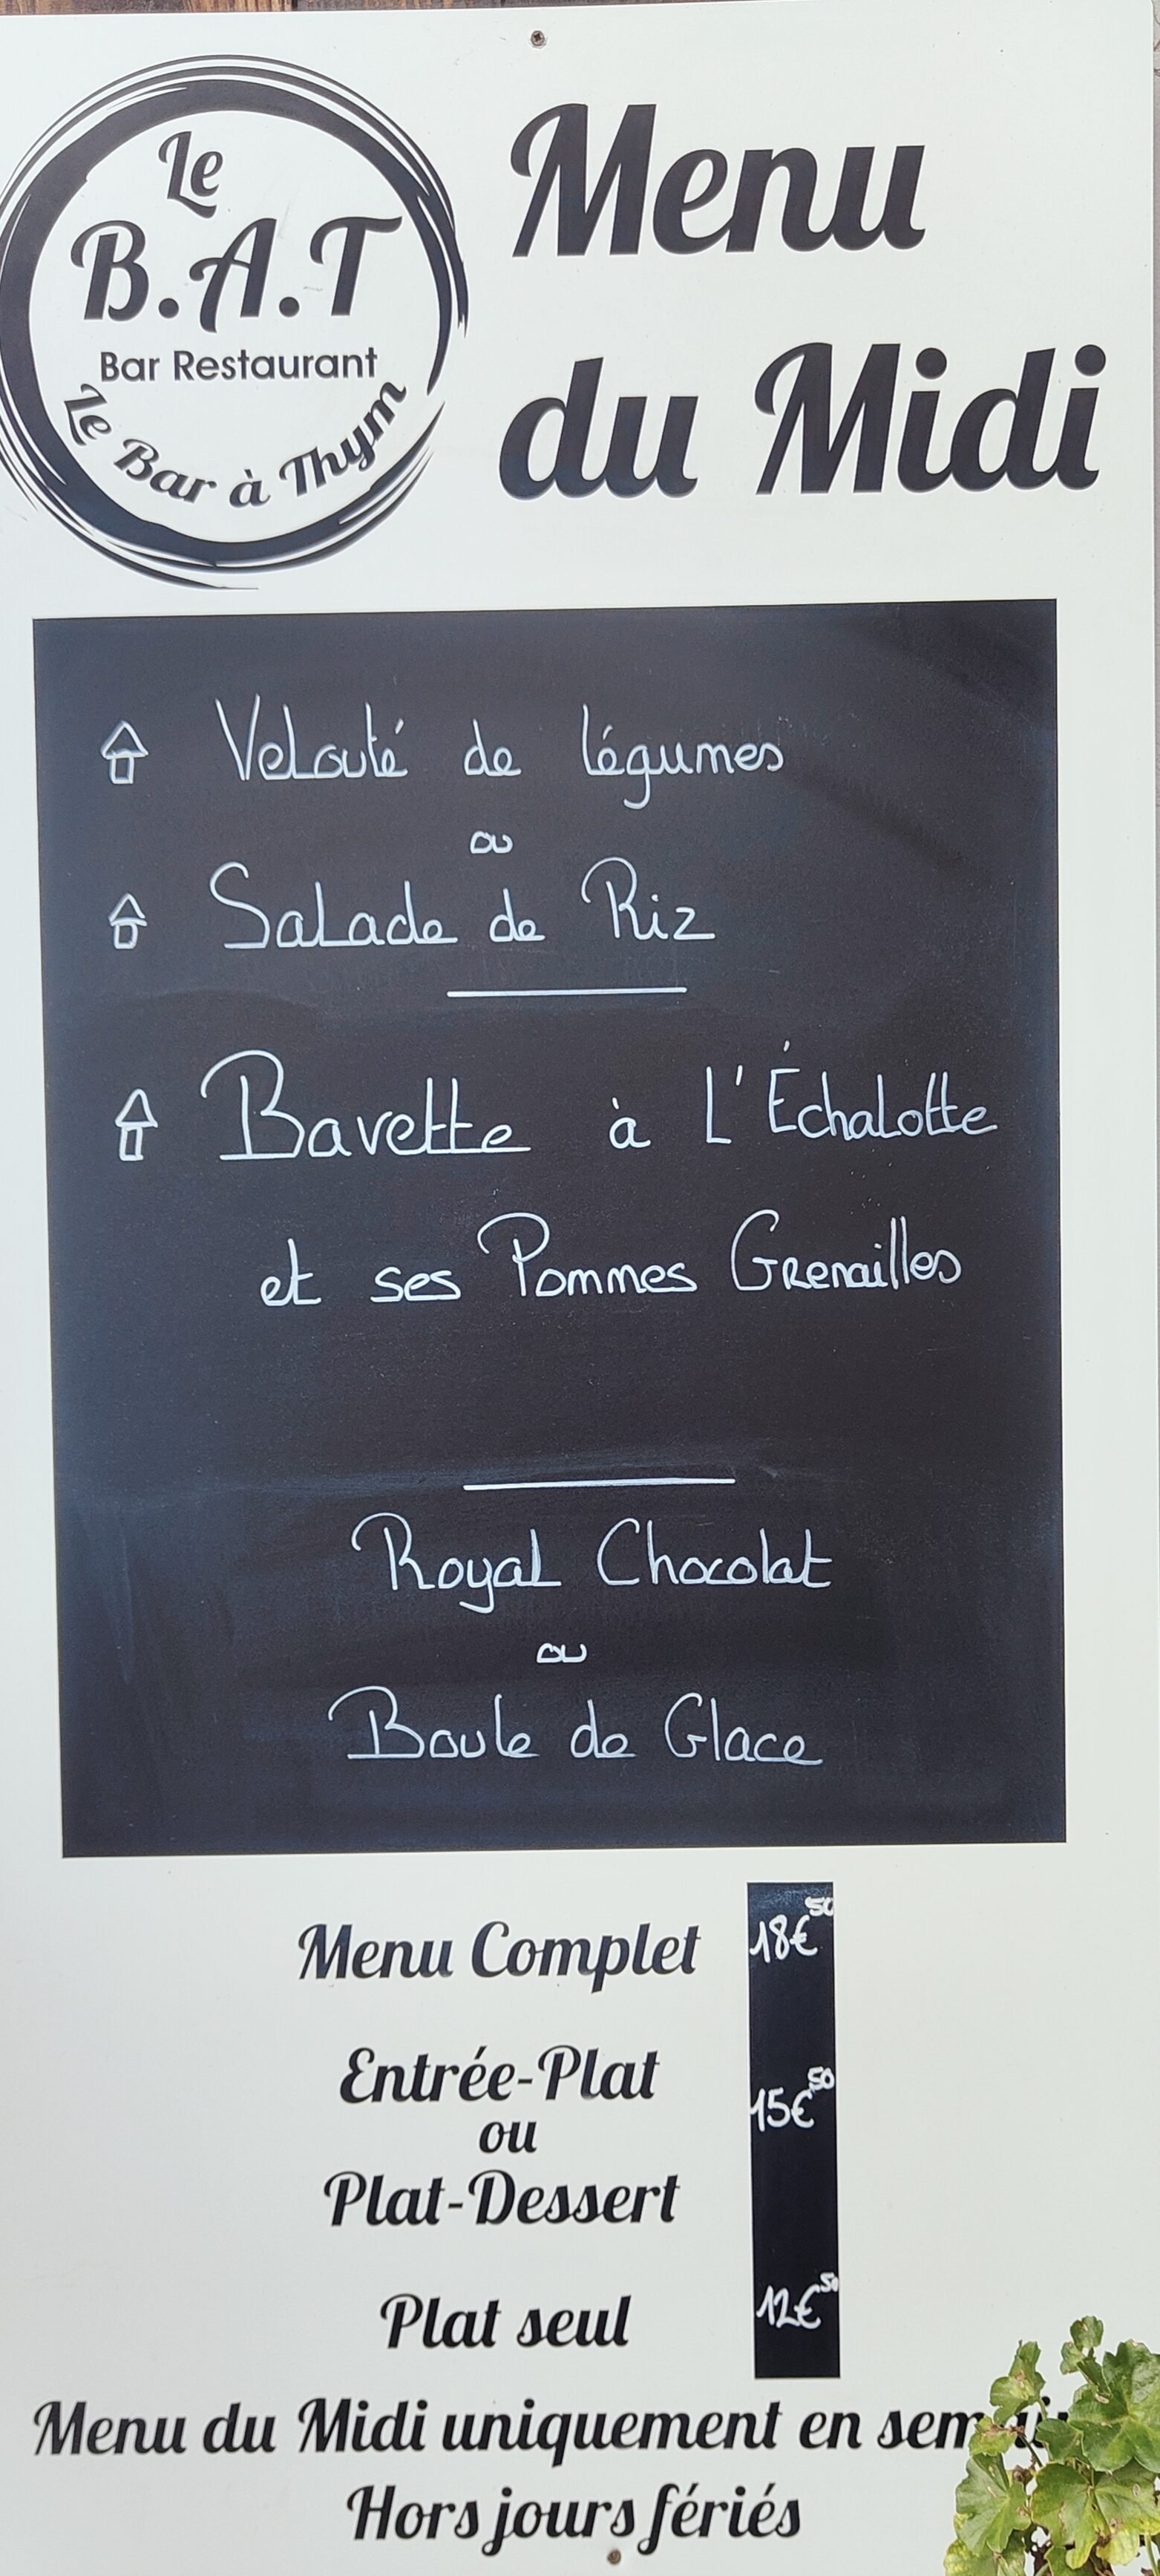 Le
B.A.T
Bar Restaurant
Le Bar à Thym
Menu
du Midi
Velouté de légumes
ou
Salade de Riz
Bavette à L'Échalotte
et ses Pommes Grenailles
Royal Chocolat
ou
Boule de Glace
Menu Complet 18€50
Entrée-Plat
ou 15€50
Plat-Dessert
Plat seul 12€50
Menu du Midi uniquement en
Hors jours fériés